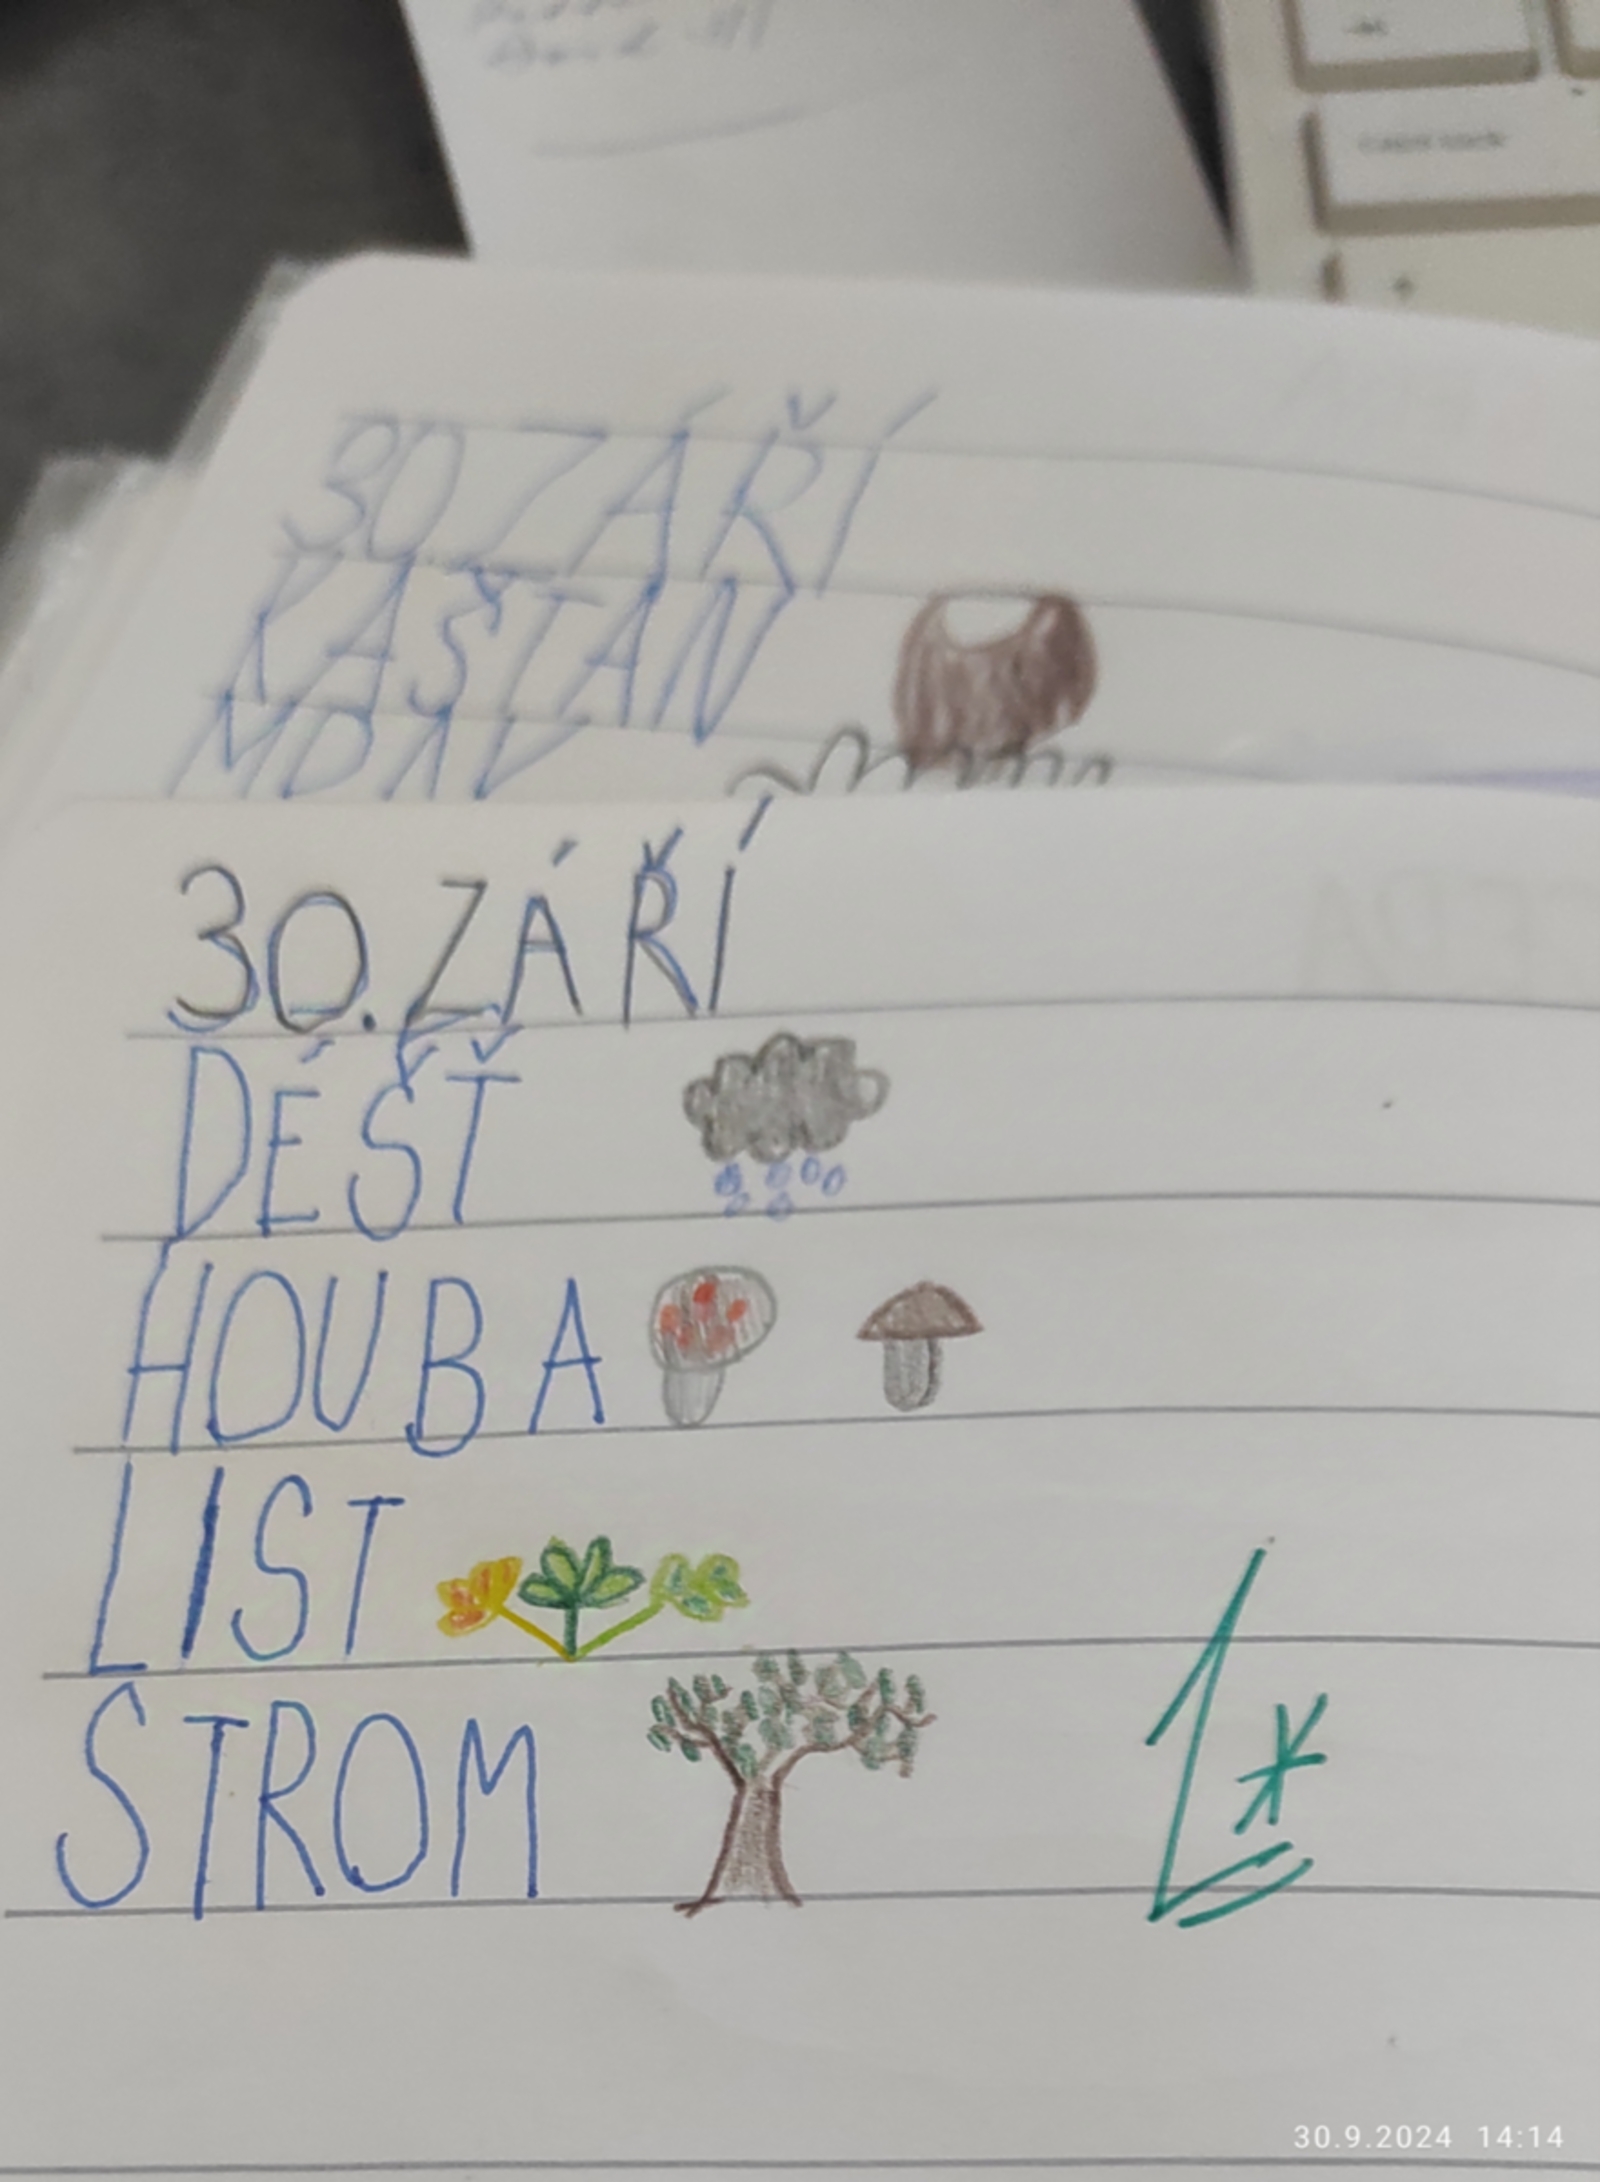 30. ZÁŘÍ
KAŠTAN
30. ZÁŘÍ
DÉŠŤ
HOUBA
LIST
STROM
1*
30.9.2024 14:14